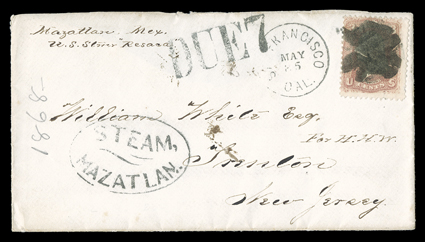 Mazatlan Mex.
U.S. Stmr Resaca
DUE 7
FRANCISCO
MAY
25
CAL.
William White Esq.
For H.H.W.
STEAM,
MAZATLAN.
Trenton
New Jersey.